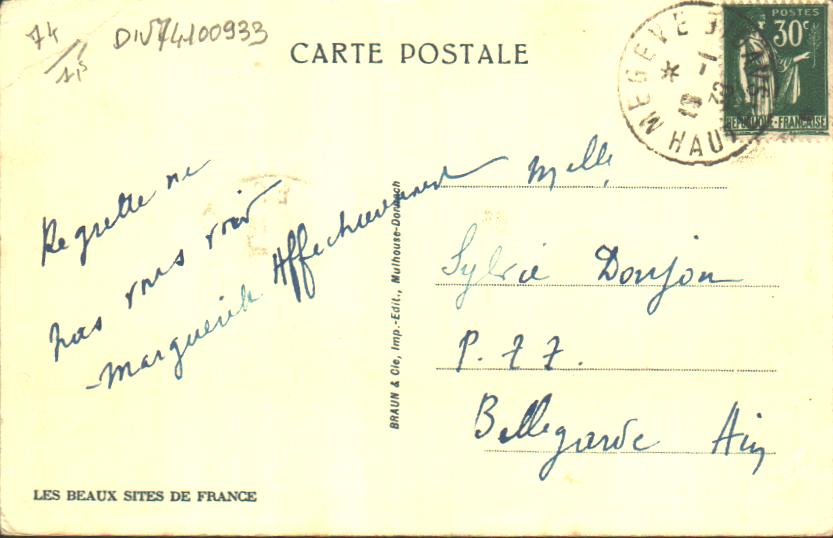 74
1,5
DIV74100933
CARTE POSTALE
POSTES
30c
REPUBLIQUE-FRANÇAISE
MEGEVE
HAUTE
19 -1
Regrette ne
pas vous voir
Affectueusement
Marguerite
BRAUN & Cie, Imp.-Edit., Mulhouse-Dornach
Melle
Sylvie Donjon
P.T.T.
Bellegarde Ain
LES BEAUX SITES DE FRANCE